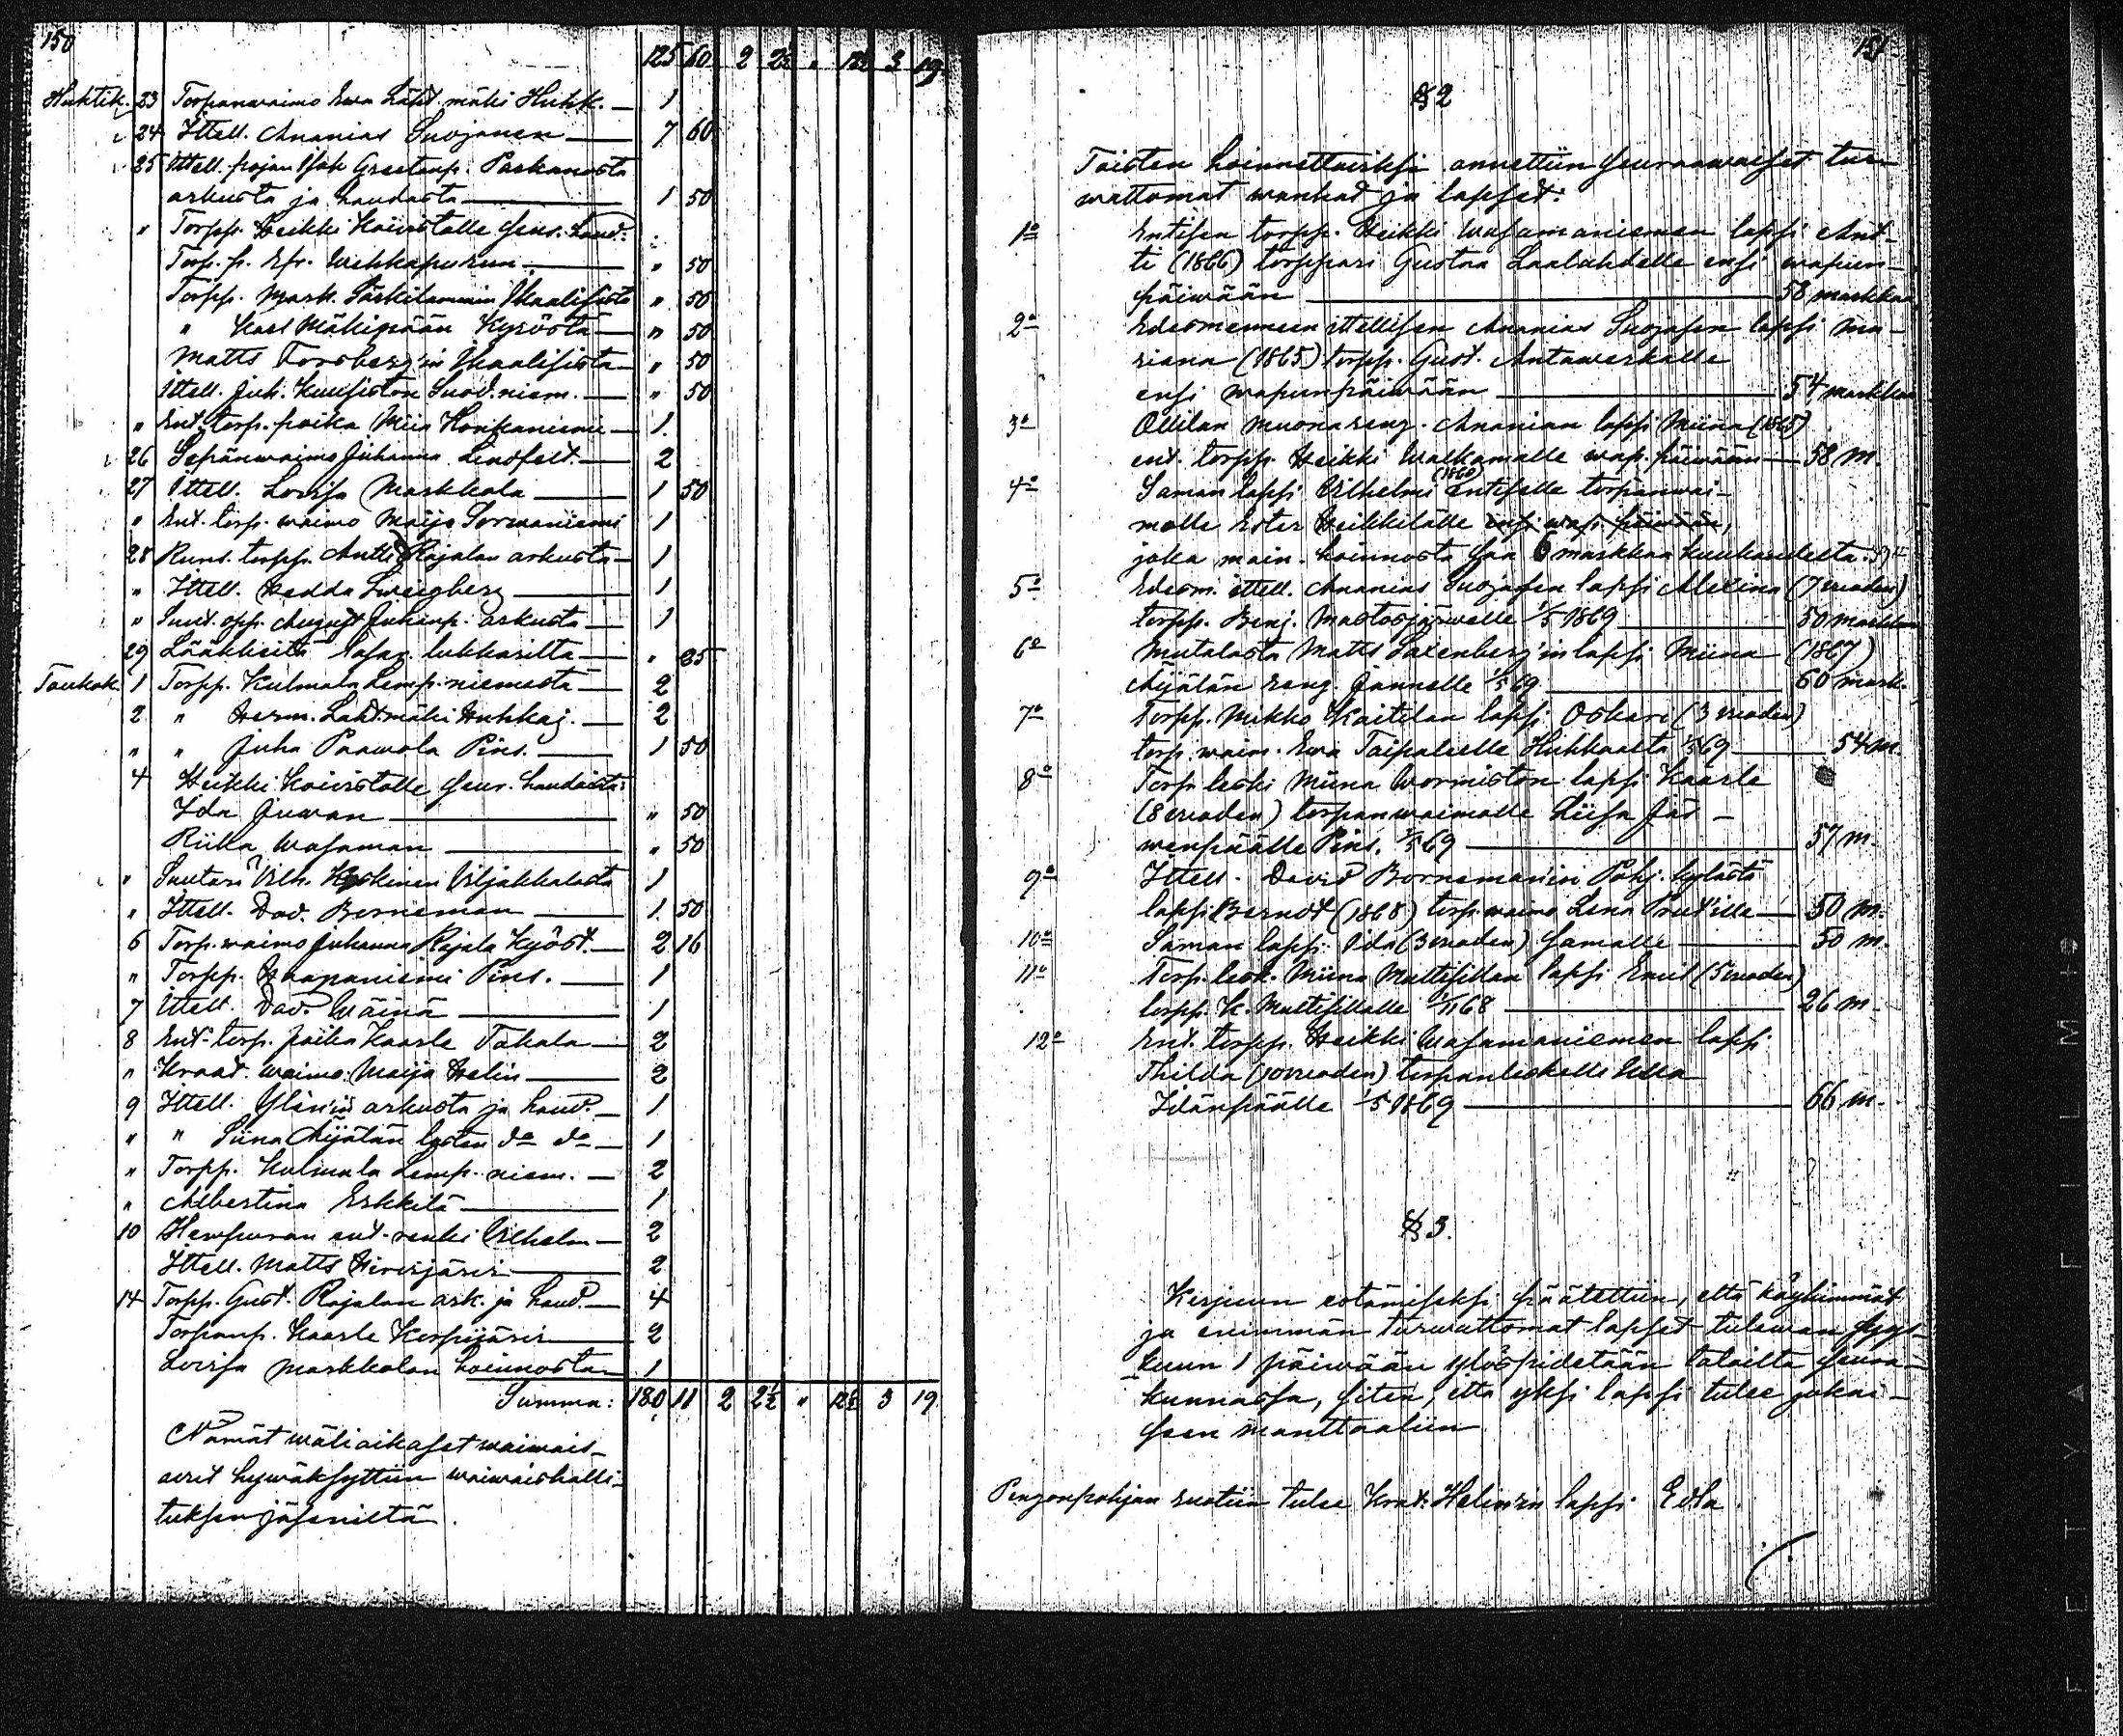 150
125 60 2 2½ " 12½ 3 19
Huhtik. 23 Torpanwaimo Ewa Laht.mäki Huhk. — 1
24 Ittell. Ananias Suojanen — 7 60
25 Ittell. pojan Isak Greetanp. Parkanosta
arkusta ja haudasta — 1 50
" Torpp. Heikki Koivistolle seur. haud:
Torp. p. Efr. Wehkapuron — " 50
Torpp. Mark. Särkilammin Ikaalisista " 50
" Karl Mäkipään Kyröstä — " 50
Matts Forsberg'in Ikaalisista — " 50
Ittell. Juh. Kuusiston Suod.niem. — " 50
" Ent. torp. poika Miin Honkaniemi — 1.
26 Sepänwaimo Juhanna Lindfelt. — 2
27 Ittell. Lovisa Markkola — 1 50
" Ent. torp. waimo Maija Sorwaniemi 1
28 Runs. torpp. Antti Rajalan arkusta — 1
" Ittell. Hedda Sweigberg — 1
" Suut. opp. August Juhanp. arkusta — 1
29 Lääkkeitä Lasar. lukkarilta — " 85
Toukok. 1 Torpp. Kulmala Lemp.niemestä — 2
2 " Herm. Lahtmäki Huhkaj. — 2
" " Juha Paawola Pins. — 1 50
4 Heikki Koivistolle seur. haudoista:
Ida Juwan — " 50
Riikka Wasaman — " 50
" Suutari Vilh. Koskinen Viljakkalasta 1
" Ittell. Dav. Borneman — 1. 50
6 Torp.waimo Juhanna Rajala Kyöst. — 2 16
" Torpp. Haapaniemi Pins. — 1
7 Ittell. Dav. Wäinä — 1
8 Ent. torp. poika Kaarle Takala — 2
" Kraat. waimo Maija Helin — 2
9 Ittell. Glän'in arkusta ja haud. — 1
" " Siina Äijälän lasten do do — 1
" Torpp. Kulmala Lemp. niem. — 2
" Albertina Erkkilä — 1
10 Hempuran ent. renki Vilhelm — 2
Ittell. Matts Hirvijärvi — 2
14 Torpp. Gust. Rajalan ark. ja haud. — 4
Torpanp. Kaarle Korpijärvi — 2
Lovisa Markkolan hoinnosta — 1
Summa: 180 11 2 2½ " 12½ 3 19
Nämät wäliaikaset waiwais-
awut hywäksyttiin waiwaishalli-
tuksen jäseniltä.
151
§ 2
Toisten hoinnettaviksi annettiin seuraawaiset tur-
wattomat wanhat ja lapset:
1o Entisen torpp. Heikki Wasamaniemen lapsi Ant-
ti (1866) torppari Gustaa Laalahdelle ensi wapun-
päiwään — 58 markkaa
2o Edesmenneen ittellisen Ananias Suojasen lapsi Ma-
riana (1865) torpp. Gust. Antawerkalle
ensi wapunpäiwään — 54 markkaa
3o Ollilan muonareng. Ananian lapsi Miina (1865)
ent. torpp. Heikki Walkamalle wap. päiwään — 58 m
4o Saman lapsi Vilhelmi (1860) entiselle torpanwai-
molle Ester Heikkilälle ensi wap. päiwään,
joka main. hoinnosta saa 6 markkaa kuukaudelta.
5o Edesm. ittell. Ananias Suojasen lapsi Alexina (7 wuoden)
torpp. Benj. Mastosjärwelle 1/5 1869 — 50 markkaa
6o Mutalasta Matts Saxenberg'in lapsi Miina (1867)
Äijälän reng. Jannelle 1/5 69 — 60 mark.
7o Torpp. Mikko Kaitilan lapsi Oskari (3 wuoden)
torp. waim. Ewa Taipaleelle Huhkaalta 1/5 69 — 54 m.
8o Torp. leski Miina Wormiston lapsi Kaarle
(8 wuoden) torpanwaimolle Liisa Jär-
wenpäälle Pins. 1/5 69 — 57 m.
9o Ittell. David Borneman'in Pohj. kylästä
lapsi Berndt (1868) torp.waimo Lena Prut'ille — 50 m.
10o Saman lapsi Ida (3 wuoden) samalle — 50 m.
11o Torp. lesk. Miina Multisillan lapsi Emil (5 wuoden)
torpp. K. Multisillalle 1/11 68 — 26 m.
12o Ent. torpp. Heikki Wasamaniemen lapsi
Thilda (10 wuoden) torpanleskelle Ulla
Idänpäälle 1/5 1869 — 66 m.
§ 3.
Kerjuun estämiseksi päätettiin, että köyhimmät
ja enimmän turwattomat lapset tulewan syys-
kuun 1 päiwään ylöspidetään taloilta seura-
kunnassa, siten, että yksi lapsi tulee jokai-
seen manttaaliin.
Penzonpohjan ruotiin tulee Kraat. Helin'in lapsi Edla.
FILM
FETYA